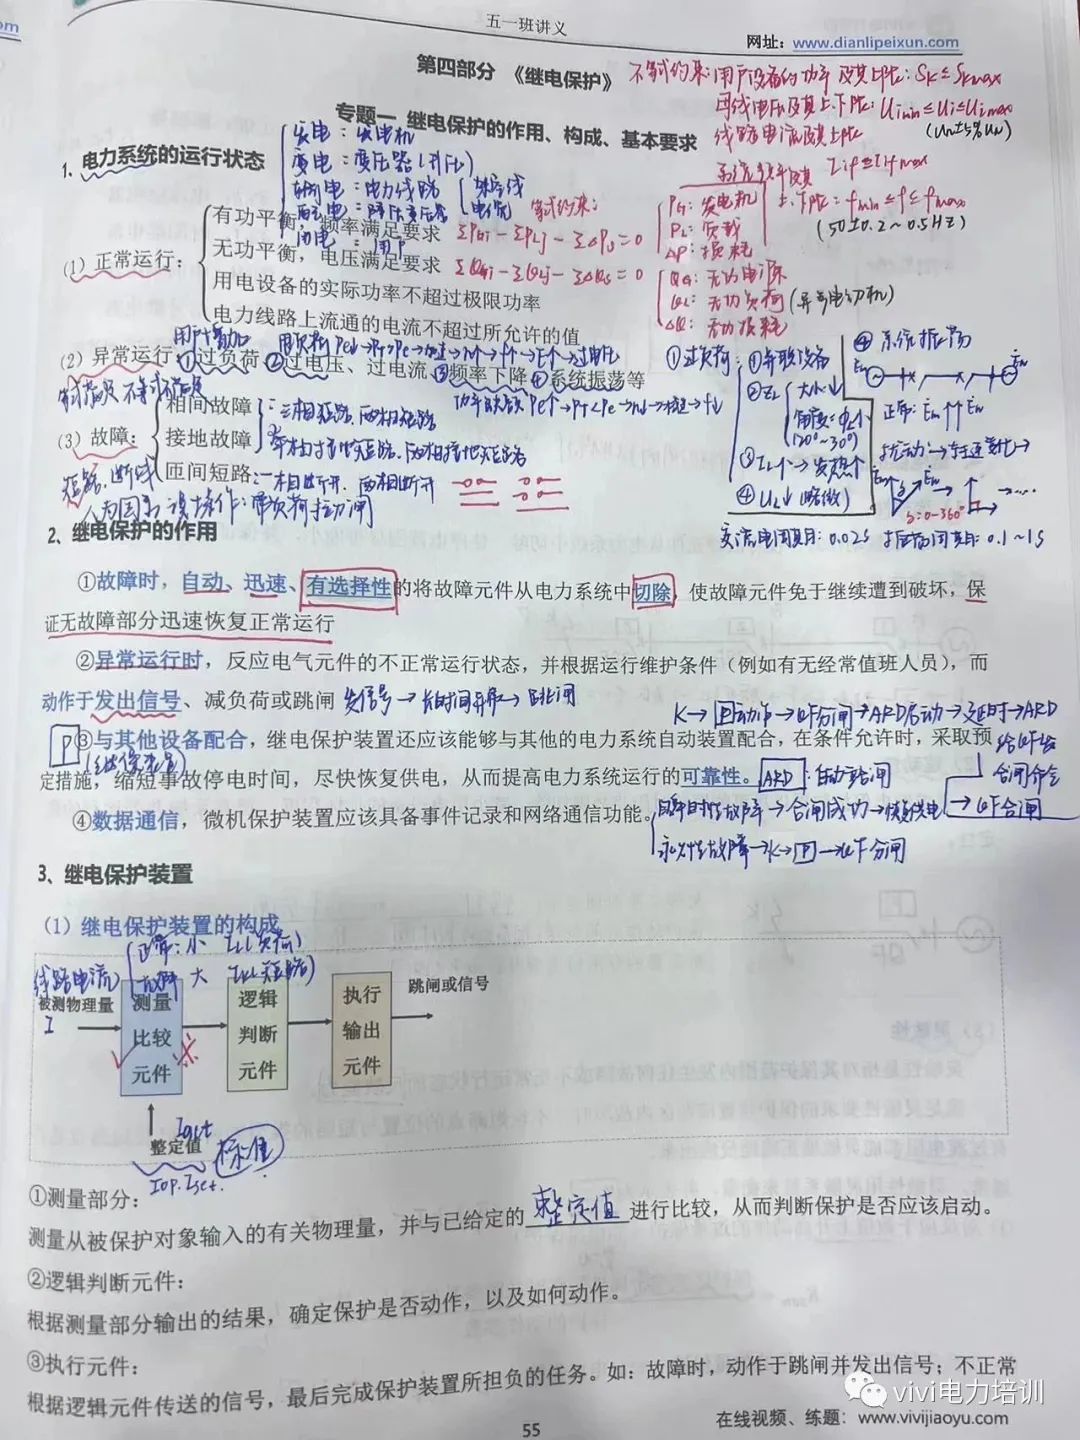 om
五一班讲义
网址：www.dianlipeixun.com
第四部分 《继电保护》
不等式约束：用户设备的功率及其上限：Sk≤Skmax
母线电压及其上、下限：Uimin≤Ui≤Uimax
(Un±5%Un)
专题一 继电保护的作用、构成、基本要求
线路电流及其上限
Iif≤Iifmax
1、电力系统的运行状态
发电：发电机
变电：变压器(升压)
输电：电力线路
架空线
电缆
配电：降压变压器
用电：用户
等式约束：
系统频率及其
上、下限：fmin≤f≤fmax
(50±0.2~0.5HZ)
(1) 正常运行：
有功平衡，频率满足要求 ΣPGi－ΣPLj－ΣΔPs=0
无功平衡，电压满足要求 ΣQGi－ΣQLj－ΣΔQs=0
用电设备的实际功率不超过极限功率
电力线路上流通的电流不超过所允许的值
PG：发电机
PL：负载
ΔP：损耗
QG：无功电源
QL：无功负荷(异步电动机)
ΔQ：无功损耗
用户增加
(2) 异常运行：①过负荷 ②过电压、过电流 ③频率下降 ④系统振荡等
(3) 故障：
相间故障：三相短路、两相短路
接地故障 单相接地短路、两相接地短路
匝间短路：一相断开、两相断开
短路、断线
人为因素：误操作：带负荷拉刀闸
①过负荷：①并联设备
②ZL 大小↓
角度：φ小
(20°~30°)
③IL↑→发热↑
④UL↓(略微)
④系统振荡
正常：
δ=0~360°
交流电周期：0.02s 振荡周期：0.1~1s
2、继电保护的作用
①故障时，自动、迅速、有选择性的将故障元件从电力系统中切除，使故障元件免于继续遭到破坏，保
证无故障部分迅速恢复正常运行
②异常运行时，反应电气元件的不正常运行状态，并根据运行维护条件（例如有无经常值班人员），而
动作于发出信号、减负荷或跳闸 发信号→长时间异常→跳闸
K→P动作→QF分闸→ARD启动→延时→ARD
给QF合
合闸命令
→QF合闸
P
(继保装置)
③与其他设备配合，继电保护装置还应该能够与其他的电力系统自动装置配合，在条件允许时，采取预
定措施，缩短事故停电时间，尽快恢复供电，从而提高电力系统运行的可靠性。ARD：自动重合闸
④数据通信，微机保护装置应该具备事件记录和网络通信功能。
瞬时性故障→合闸成功→恢复供电
永久性故障→K→P→QF分闸
3、继电保护装置
(1) 继电保护装置的构成
线路电流
正常：小 IL(负荷)
故障 大 IK(短路)
被测物理量
I
测量
比较
元件
逻辑
判断
元件
执行
输出
元件
跳闸或信号
Iset
整定值
标准
Iop.Iset.
①测量部分：
测量从被保护对象输入的有关物理量，并与已给定的整定值进行比较，从而判断保护是否应该启动。
②逻辑判断元件：
根据测量部分输出的结果，确定保护是否动作，以及如何动作。
③执行元件：
根据逻辑元件传送的信号，最后完成保护装置所担负的任务。如：故障时，动作于跳闸并发出信号；不正常
vivi电力培训
在线视频、练题：www.vivijiaoyu.com
55